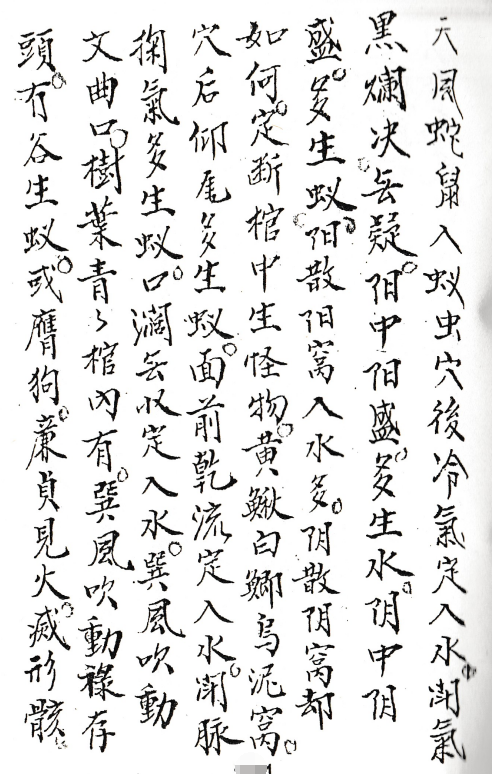 天風蛇鼠入蚁虫穴後冷氣定入水潮氣
黑爛决无疑阳中阳盛多生水阴中阴
盛多生蚁阳散阳窩入水多阴散阴窩却
如何定断棺中生怪物黄鰍白鲫烏泥窩
穴后仰尾多生蚁面前乾流定入水潮脉
掬氣多生蚁口濶无収定入水巽風吹動
文曲口樹葉青々棺内有巽風吹動祿存
頭有谷生蚁或鷹狗廉貞見火滅形骸